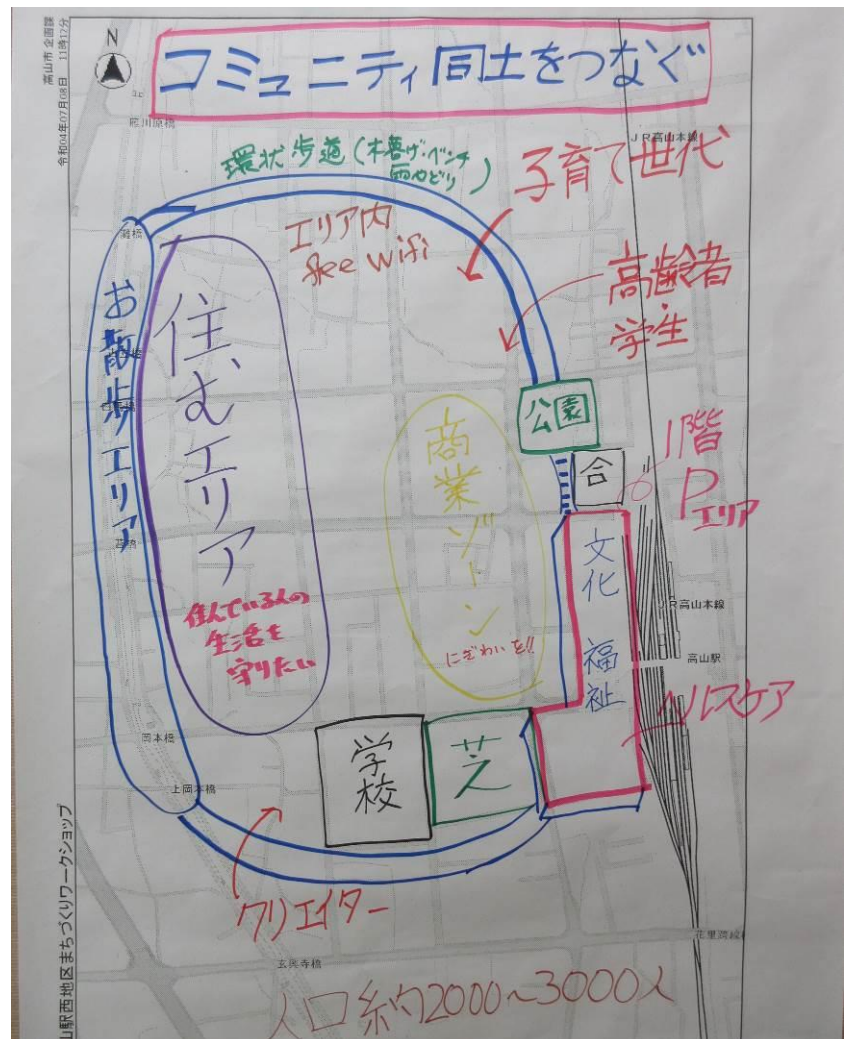 高山市 企画課
令和04年07月08日 11時17分
N
コミュニティ同士をつなぐ
環状歩道(木蔭げ・ベンチ
雨やどり)
JR高山本線
子育て世代
エリア内
free wifi
高齢者
・
学生
お散歩エリア
住むエリア
住んでいる人の
生活を
守りたい
商業ゾーン
にぎわいを!!
公園
合
1階
P
エリア
文化 福祉
JR高山本線
高山駅
ヘルスケア
岡本橋
上岡本橋
学校
芝
クリエイター
玄興寺橋
人口約2000~3000人
山駅西地区まちづくりワークショップ